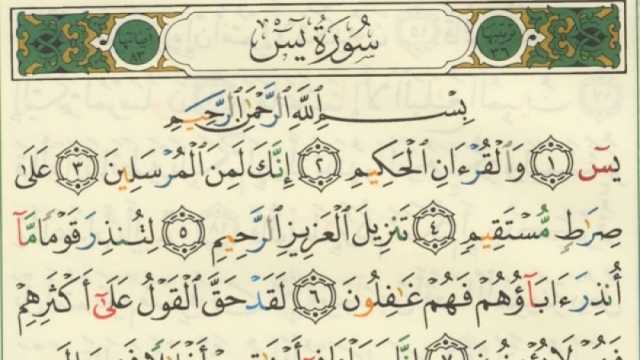 سُورَةُ يسٓ
بِسْمِ ٱللَّهِ ٱلرَّحْمَٰنِ ٱلرَّحِيمِ
يسٓ ١ وَٱلْقُرْءَانِ ٱلْحَكِيمِ ٢ إِنَّكَ لَمِنَ ٱلْمُرْسَلِينَ ٣ عَلَىٰ
صِرَٰطٍ مُّسْتَقِيمٍ ٤ تَنزِيلَ ٱلْعَزِيزِ ٱلرَّحِيمِ ٥ لِتُنذِرَ قَوْمًا مَّآ
أُنذِرَ ءَابَآؤُهُمْ فَهُمْ غَٰفِلُونَ ٦ لَقَدْ حَقَّ ٱلْقَوْلُ عَلَىٰٓ أَكْثَرِهِمْ